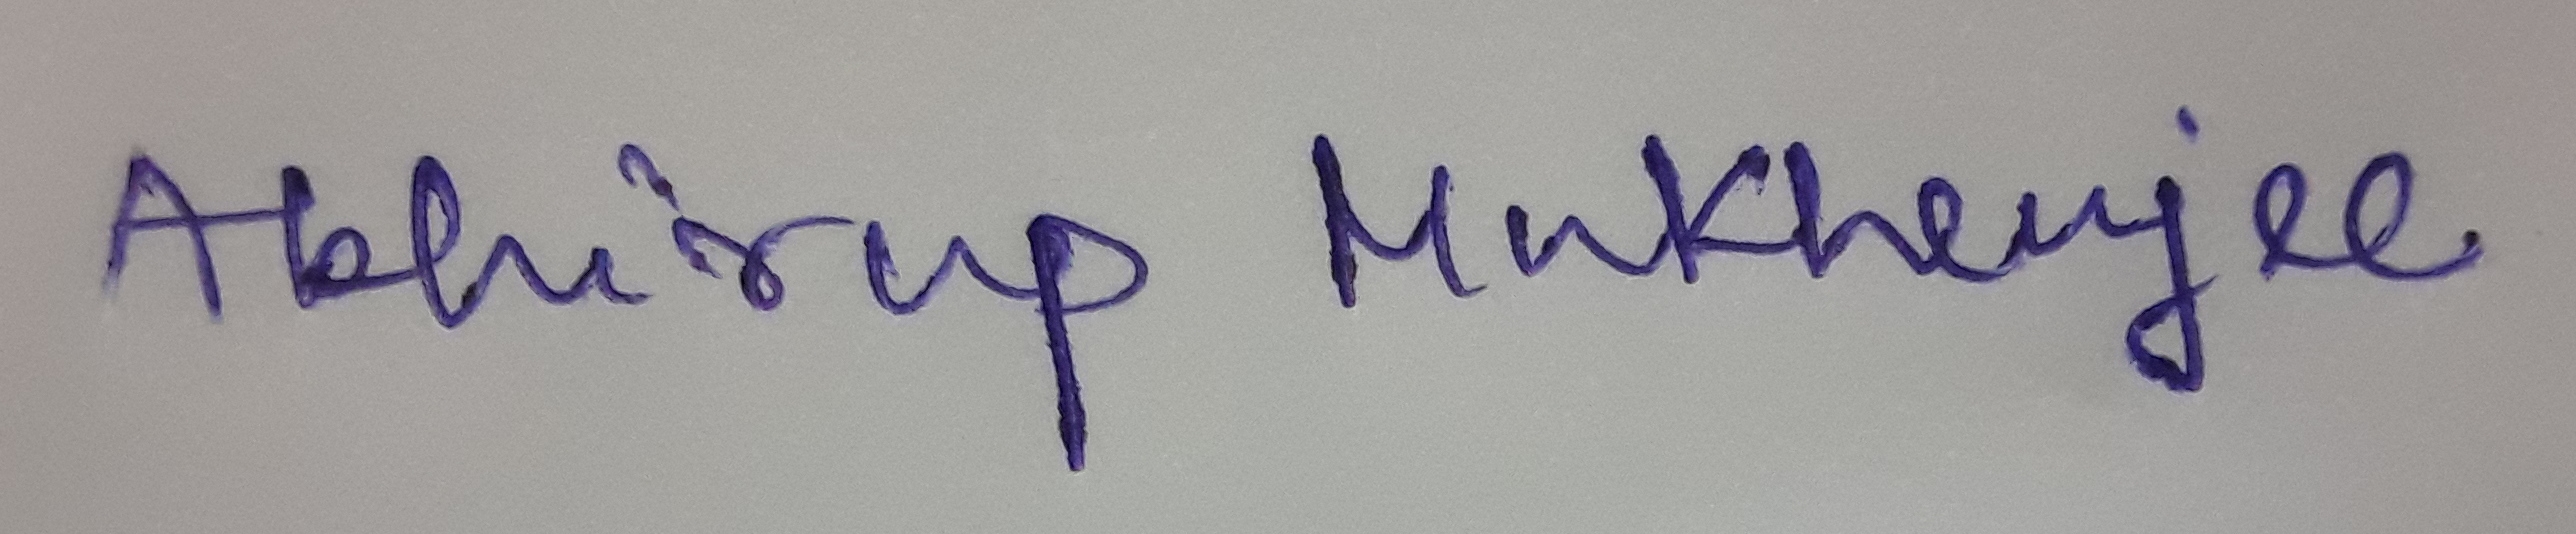 Abhirup Mukherjee